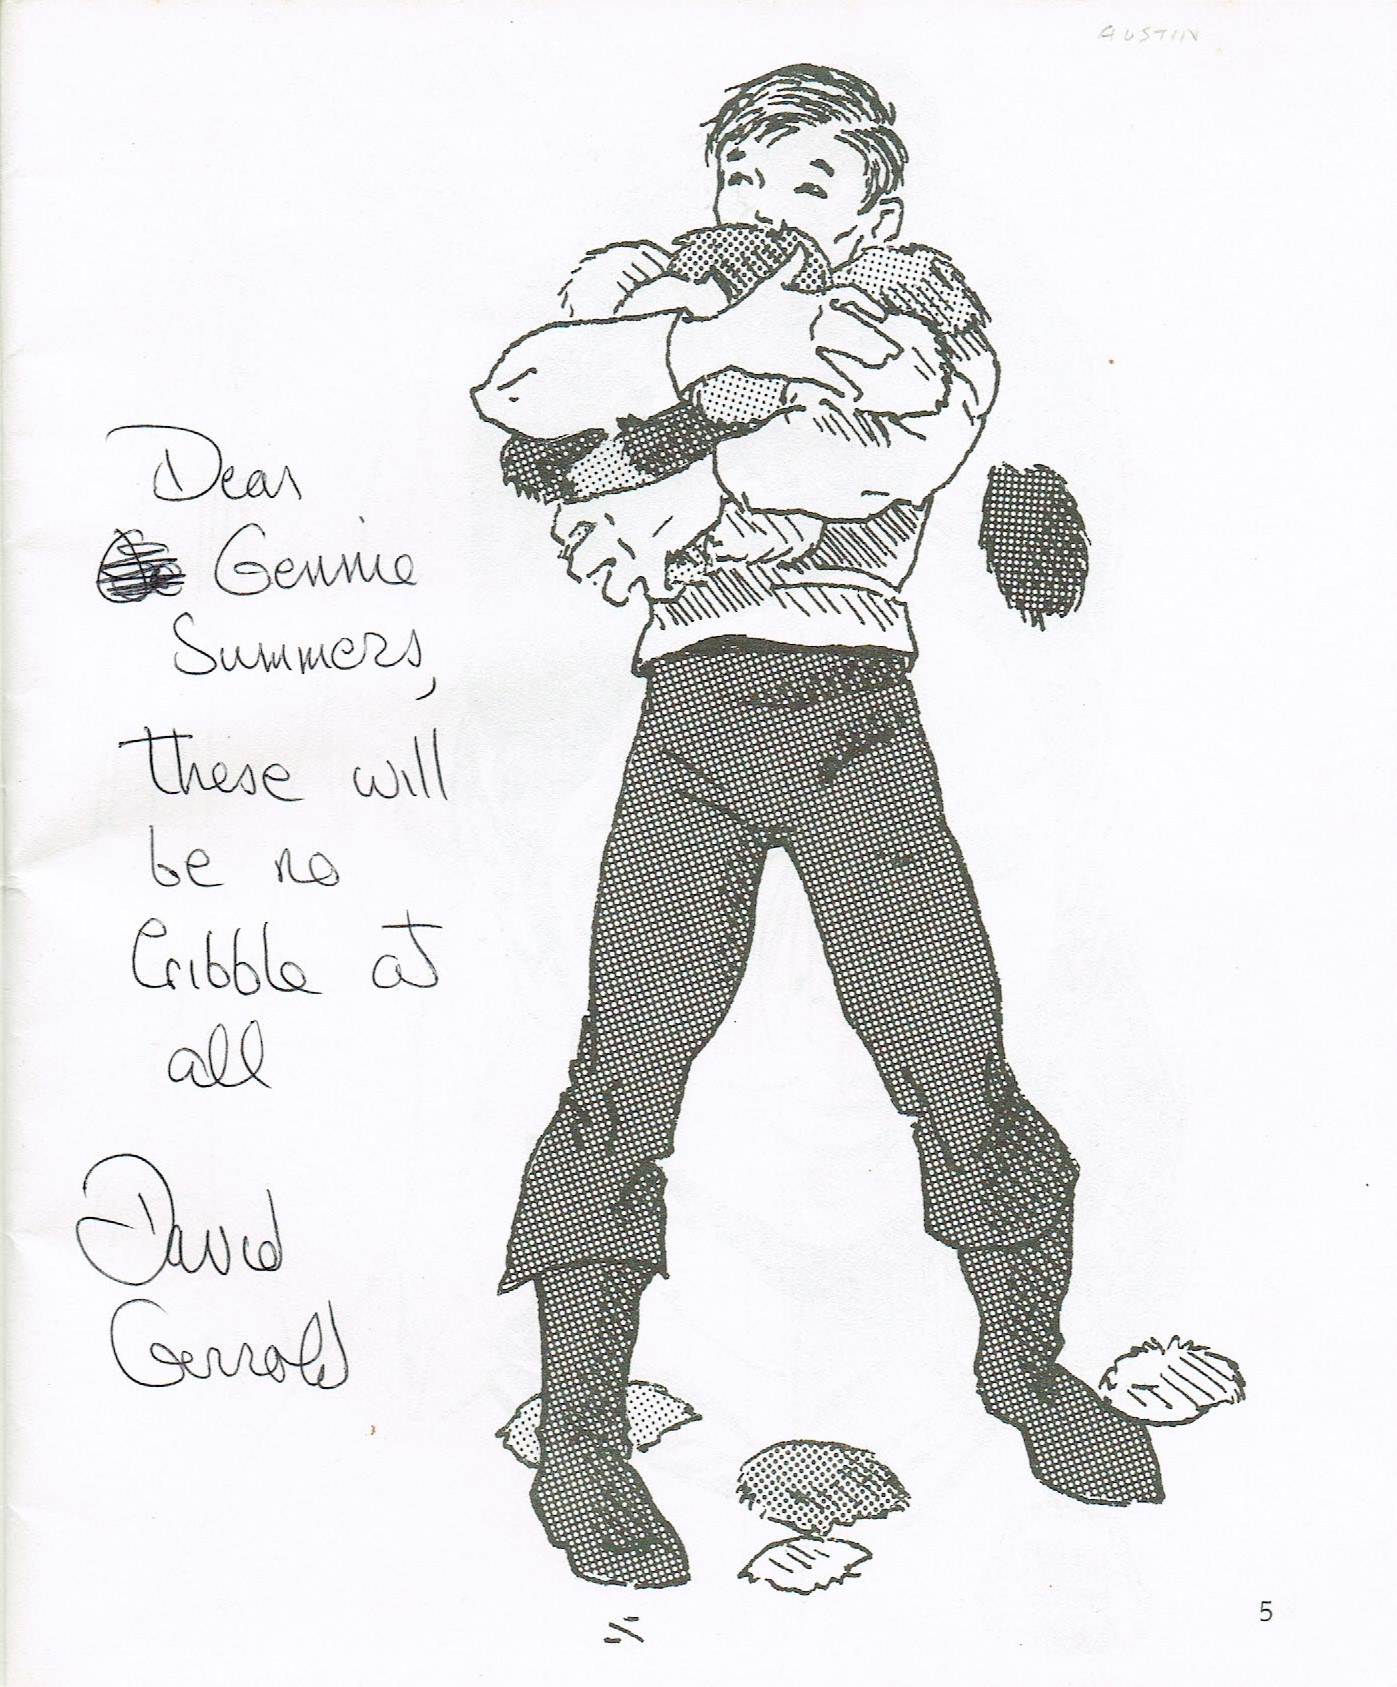 AUSTIN
Dear
Gennie
Summers,
these will
be no
tribble at
all
David
Gerrold
5